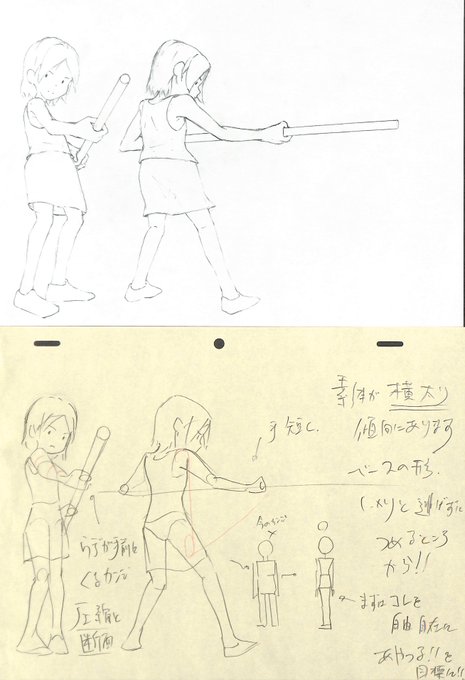 素体が 横太り
傾向にあります
手短く.
ベースの形.
しっかりと逃げずに
つめるところ
から!!
今のカンジ
うでが手前に
くるカンジ
圧縮と
断面
まずはコレを
自由自在に
あやつる!!を
目標に!!